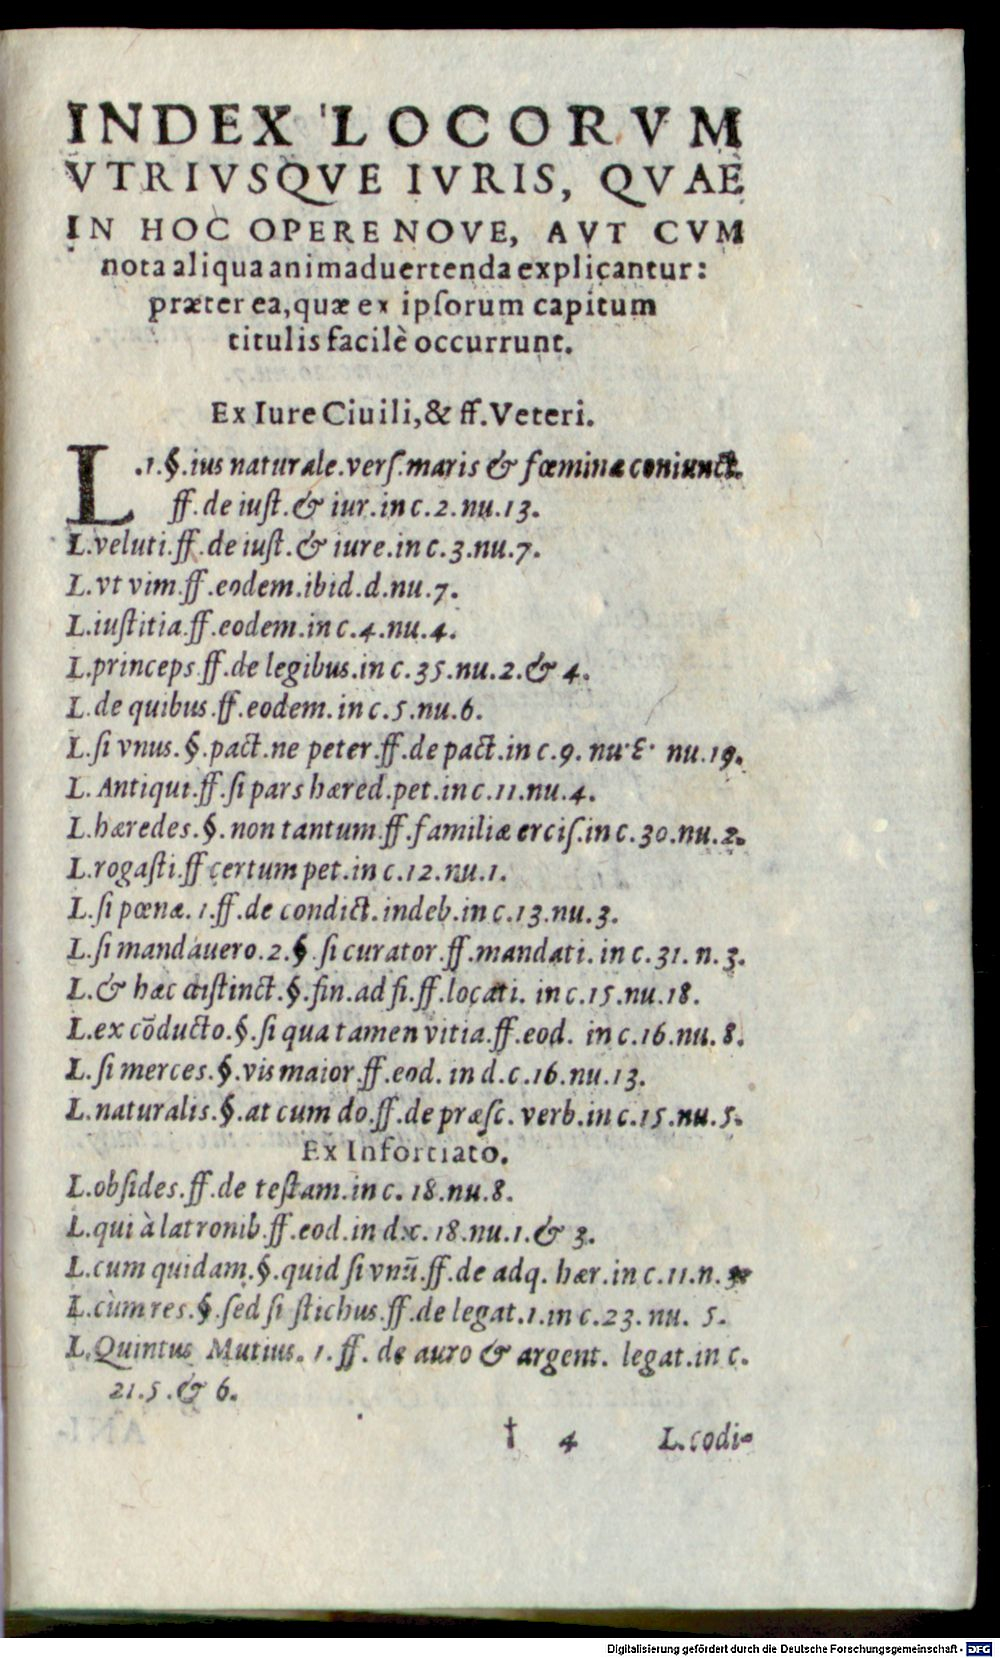 INDEX LOCORVM
VTRIVSQVE IVRIS, QVAE
IN HOC OPERE NOVE, AVT CVM
nota aliqua animaduertenda explicantur:
præter ea, quæ ex ipſorum capitum
titulis facilè occurrunt.
Ex Iure Ciuili, & ff. Veteri.
L.1.§.ius naturale.verſ.maris & fœminæ coniunct.
ff.de iuſt.& iur.in c.2.nu.13.
L.veluti.ff.de iuſt.& iure.in c.3.nu.7.
L.vt vim.ff.eodem.ibid.d.nu.7.
L.iuſtitia.ff.eodem.in c.4.nu.4.
L.princeps.ff.de legibus.in c.35.nu.2.& 4.
L.de quibus.ff.eodem.in c.5.nu.6.
L.ſi vnus.§.pact.ne peter.ff.de pact.in c.9. nu. nu.19.
L. Antiqui.ff.ſi pars hæred.pet.in c.11.nu.4.
L.hæredes.§.non tantum.ff.familiæ erciſ.in c.30.nu.2.
L.rogaſti.ff certum pet.in c.12.nu.1.
L.ſi pœnæ.1.ff.de condict.indeb.in c.13.nu.3.
L.ſi mandauero.2.§.ſi curator.ff.mandati. in c.31. n.3.
L.& hæc diſtinct.§.fin.ad fi.ff.locati. in c.15.nu.18.
L.ex cōducto.§.ſi qua tamen vitia.ff.eod. in c.16.nu. 8.
L.ſi merces.§.vis maior.ff.eod. in d.c.16.nu.13.
L.naturalis.§.at cum do.ff.de præſc. verb.in c.15.nu.5.
Ex Infortiato.
L.obſides.ff.de teſtam.in c. 18.nu.8.
L.qui à latronib.ff.eod.in d.c. 18.nu.1.& 3.
L.cum quidam.§.quid ſi vnū.ff.de adq. hær.in c.11.n.
L.cùm res.§.ſed ſi ſtichus.ff.de legat.1.in c.23. nu. 5.
L.Quintus Mutius. 1.ff. de auro & argent. legat.in c.
21.5.& 6.
† 4 L.codi-
Digitalisierung gefördert durch die Deutsche Forschungsgemeinschaft - DFG